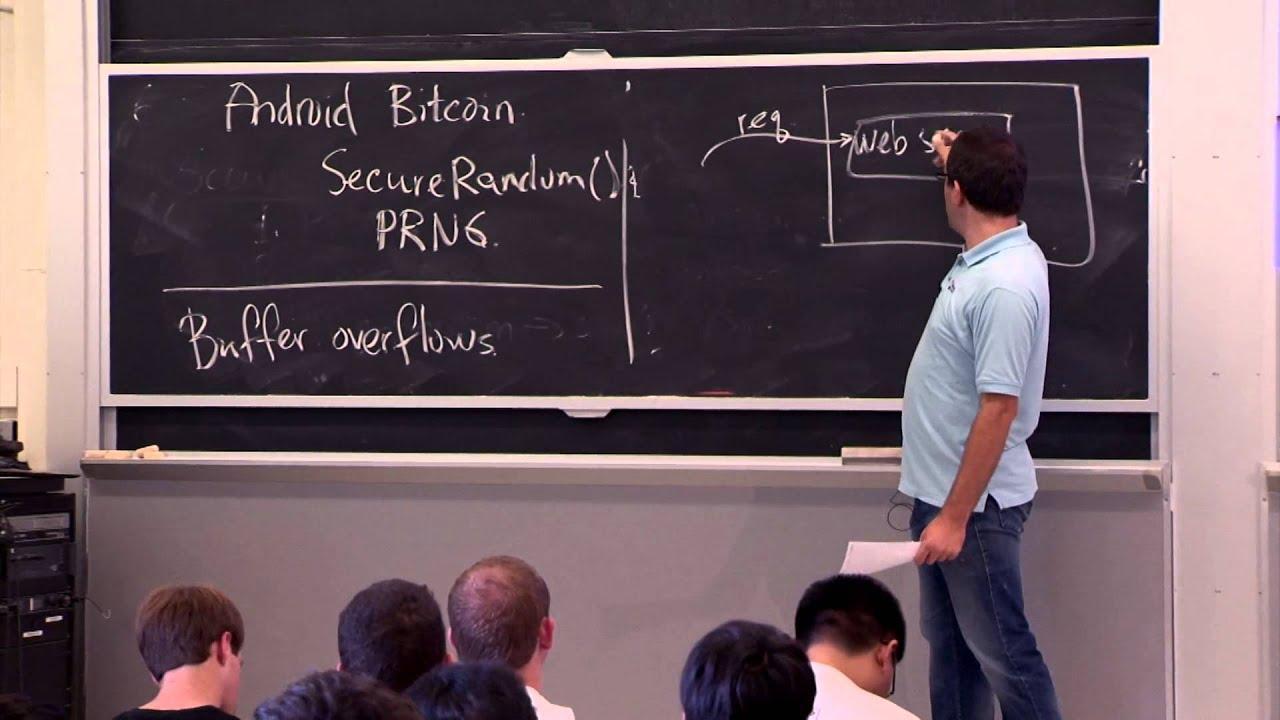 Android Bitcoin.
SecureRandom()
PRNG.
Buffer overflows.
req
web s